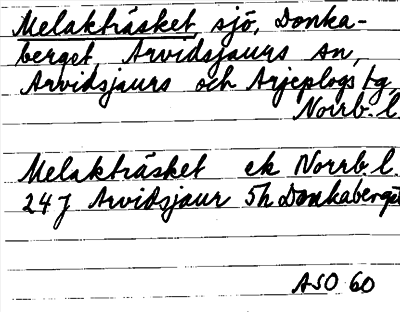 Melakträsket sjö, Donka-
berget, Arvidsjaurs sn,
Arvidsjaurs och Arjeplogs tg,
Norrb. l.
Melakträsket ek Norrb. l.
24 J Arvidsjaur 5h Donkaberget
ASO 60